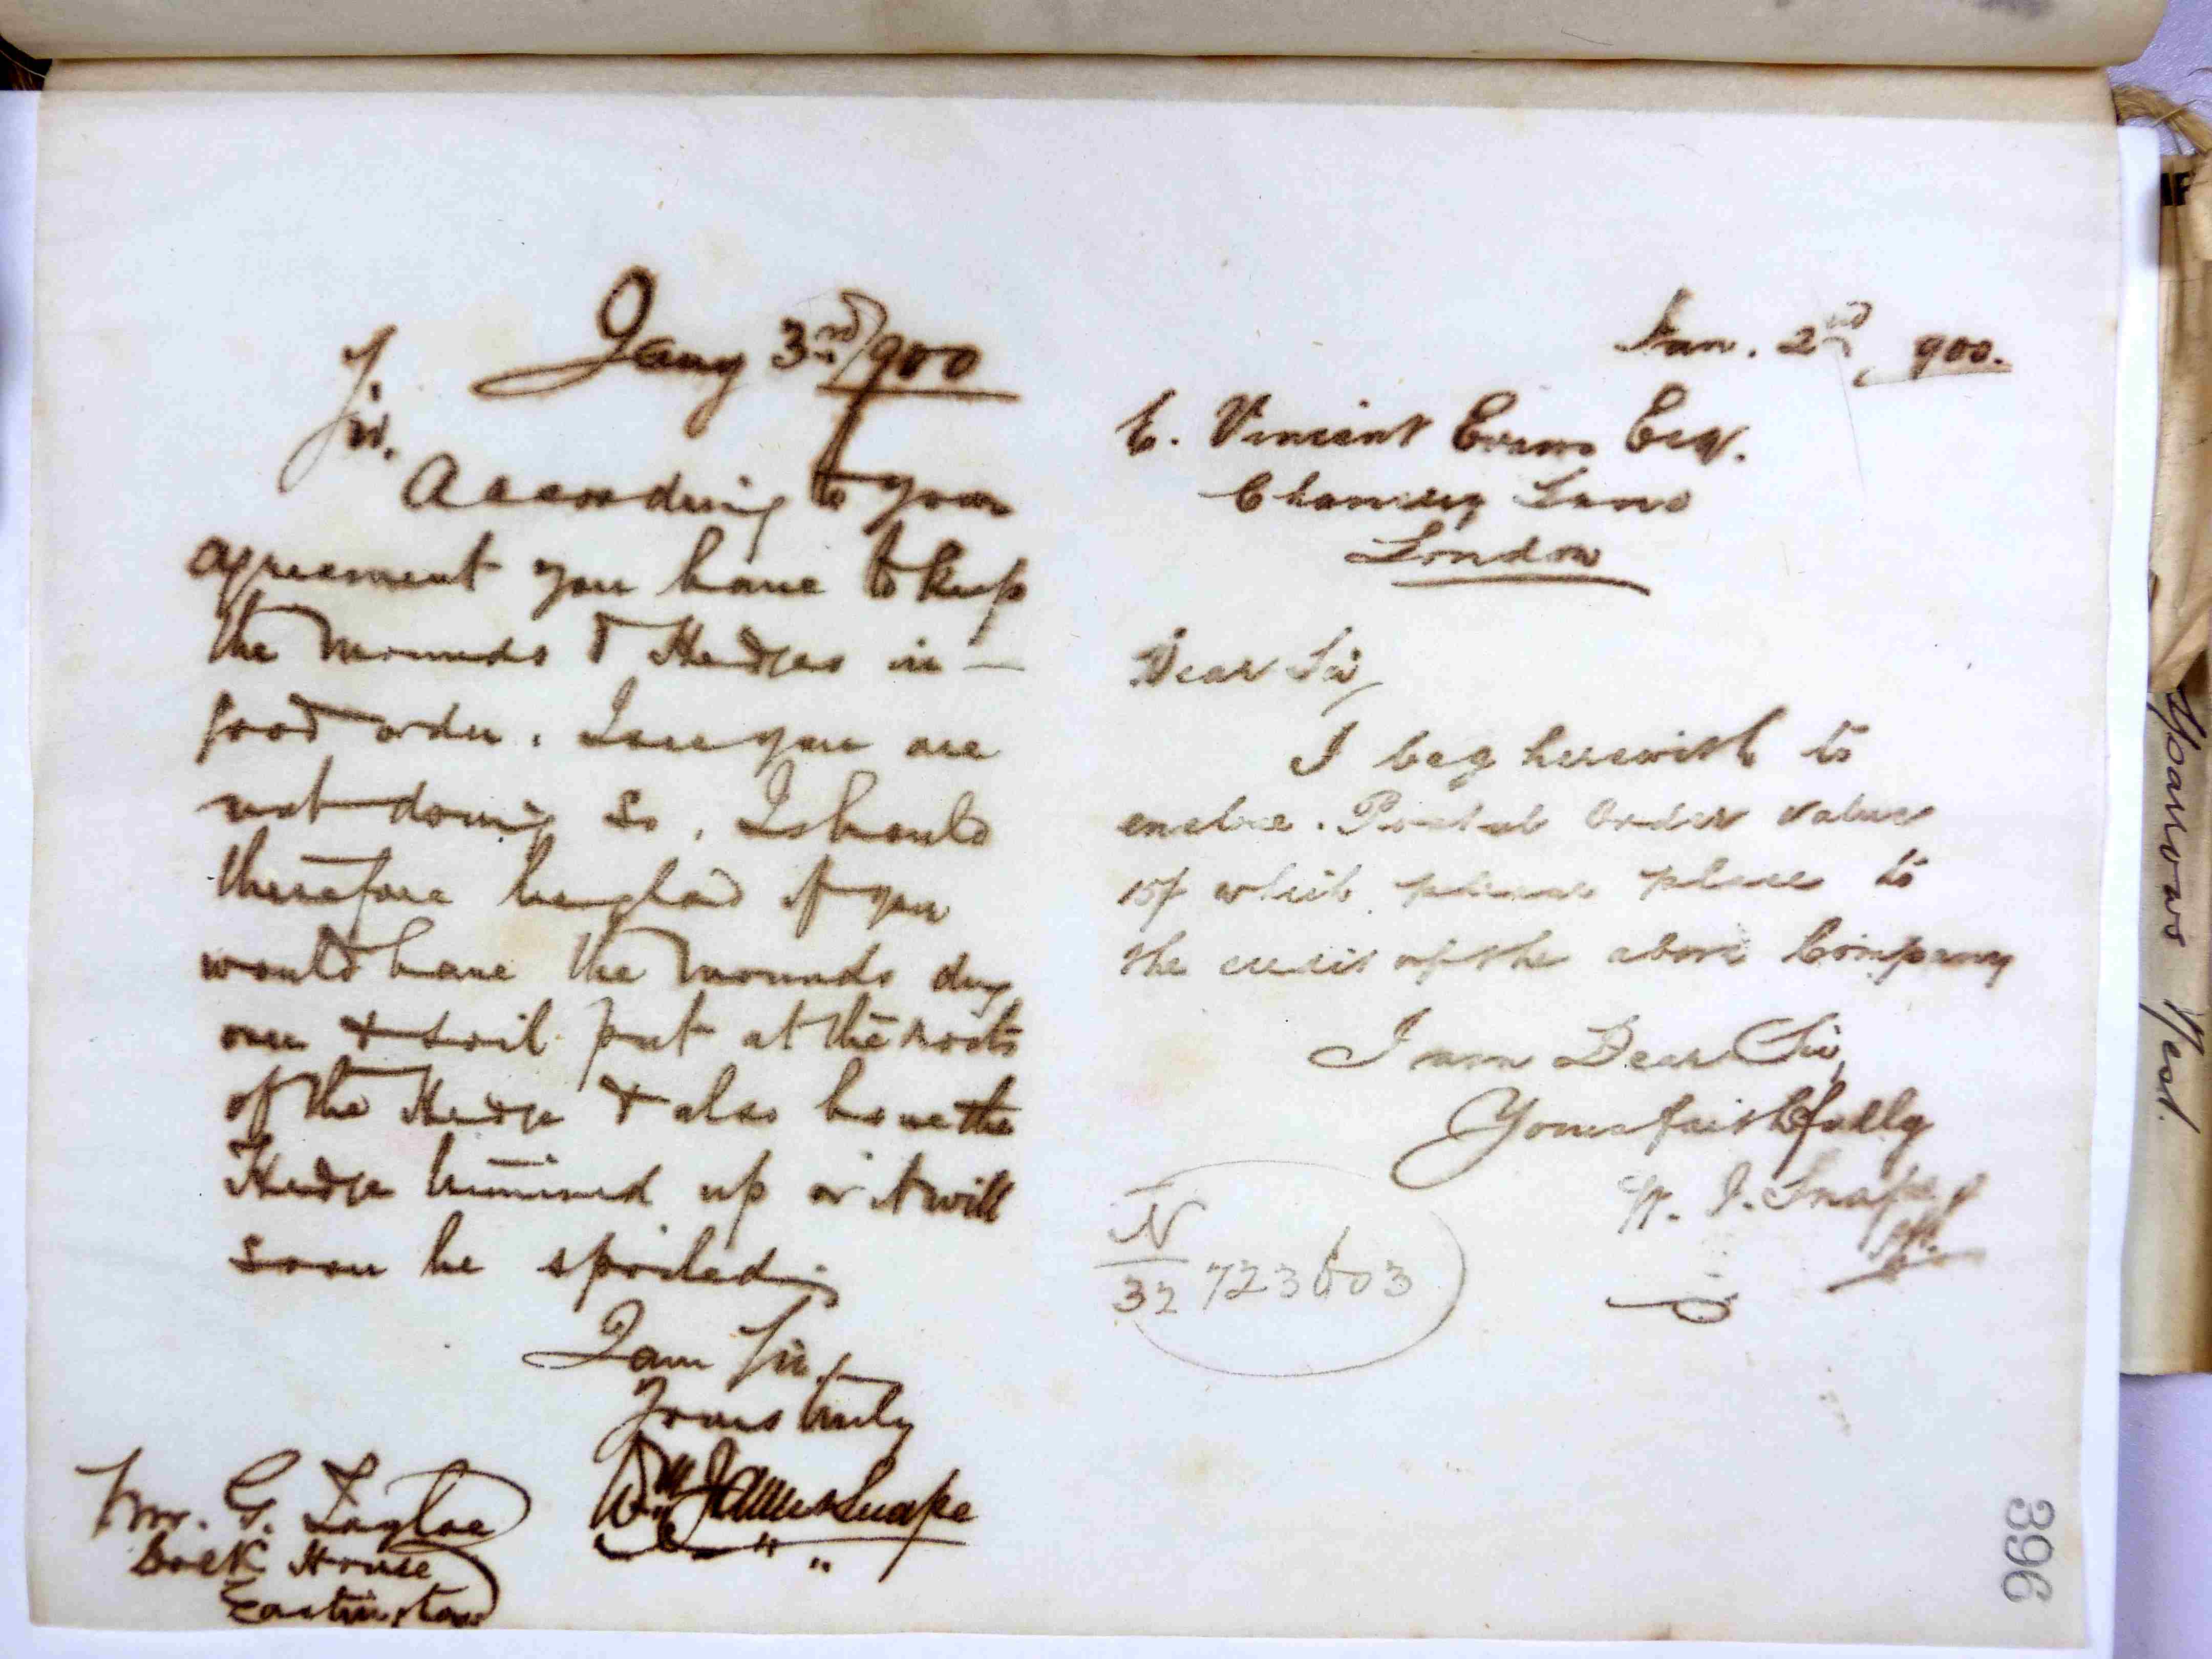 Jany 3rd/900
Sir.
According to your
agreement you have to keep
the Mounds & Hedges in —
good order. I see you are
not doing so. I should
therefore be glad if you
would have the Mounds dug
over & soil put at the roots
of the Hedge & also have the
Hedge trimmed up or it will
soon be spoiled.
I am Sir.
Yours truly
Wm James Snape
Mr. G.
House
Eastington
Jan. 2nd, 900.
E. Vincent Evans Esq.
Chancery Lane
London
Dear Sir,
I beg herewith to
enclose. Postal Order value
15/ which please place to
the credit of the above Company
I am Dear Sir,
Yours faithfully
W. J. Snape
N
32 723603
396